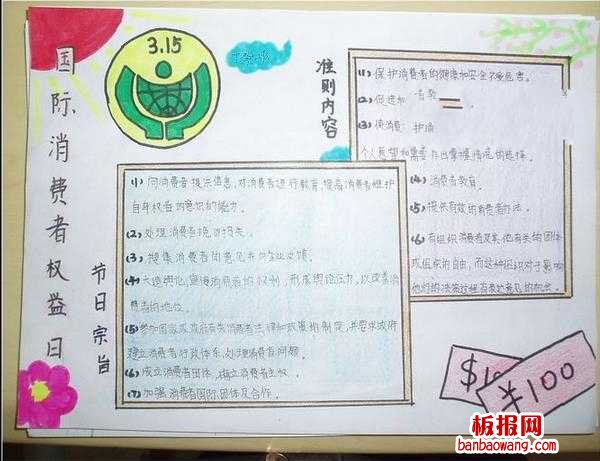 国际消费者权益日
3.15
准则内容
(1) 保护消费者的健康和安全不受危害。
(2) 促进和
(3) 使消费 护消
个人愿望和需要作出掌握情况的选择。
(4) 消费者教育。
(5) 提供有效的消费者办法。
(6) 有组织消费者及其他有关的团体
或组织的自由，而这种组织对于影响
他们的决策过程有表达意见的机会。
节日宗旨
(1) 向消费者提供信息，对消费者进行教育，提高消费者维护
自身权益的意识和能力。
(2) 处理消费者投诉
(3) 搜集消费者的意见并向企业反馈。
(4) 大造舆论，宣传消费者的权利，形成舆论压力，以改善消
费者的地位。
(5) 参加国家或政府有关消费者法律和政策的制定，并要求政府
建立消费者行政体系，处理消费者问题。
(6) 成立消费者团体，确立消费者主权。
(7) 加强消费者国际团体及合作。
$10
¥100
板报网
banbaowang.com